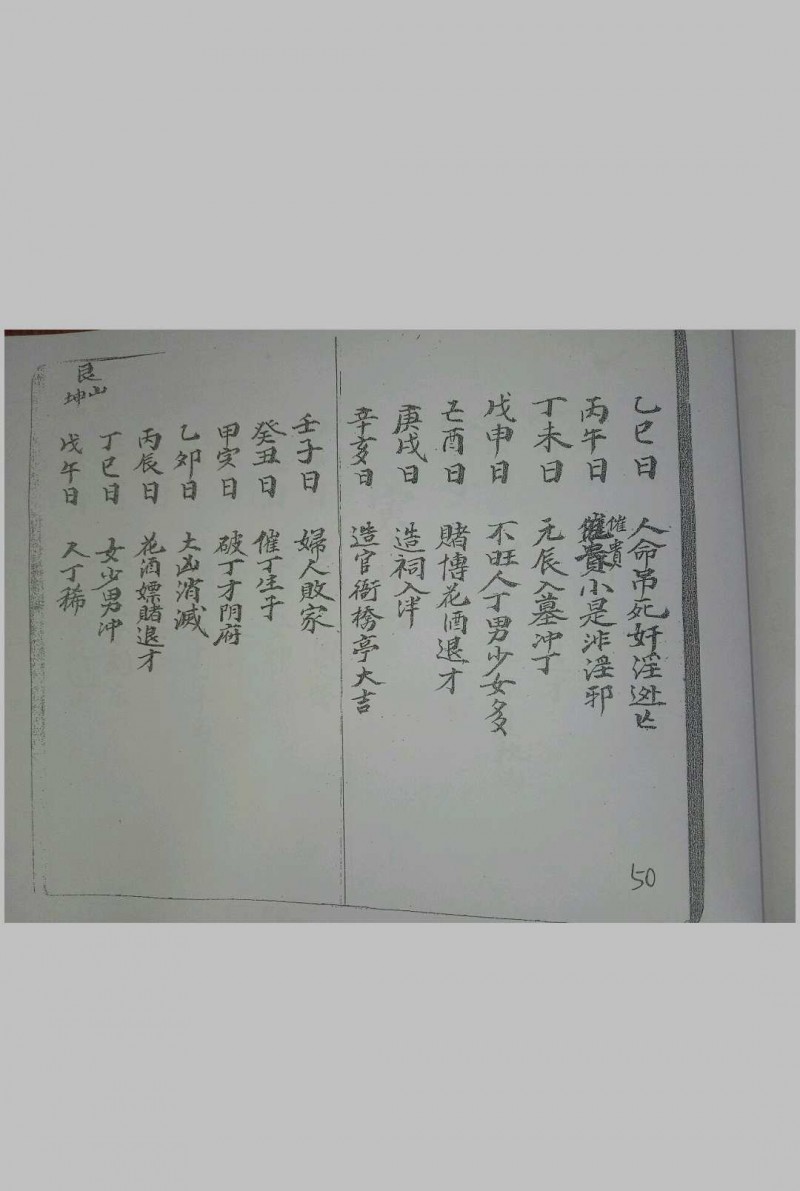 乙巳日 人命吊死奸淫迯亡
丙午日 催貴小是非淫邪
催貴
丁未日 无辰入墓冲丁
戊申日 不旺人丁男少女多
己酉日 賭博花酒退才
庚戌日 造祠入泮
辛亥日 造官衙橋亭大吉
壬子日 婦人敗家
癸丑日 催丁生子
甲寅日 破丁才阴府
乙卯日 大凶消滅
丙辰日 花酒嫖賭退才
丁巳日 女少男冲
戊午日 人丁稀
艮山坤
50